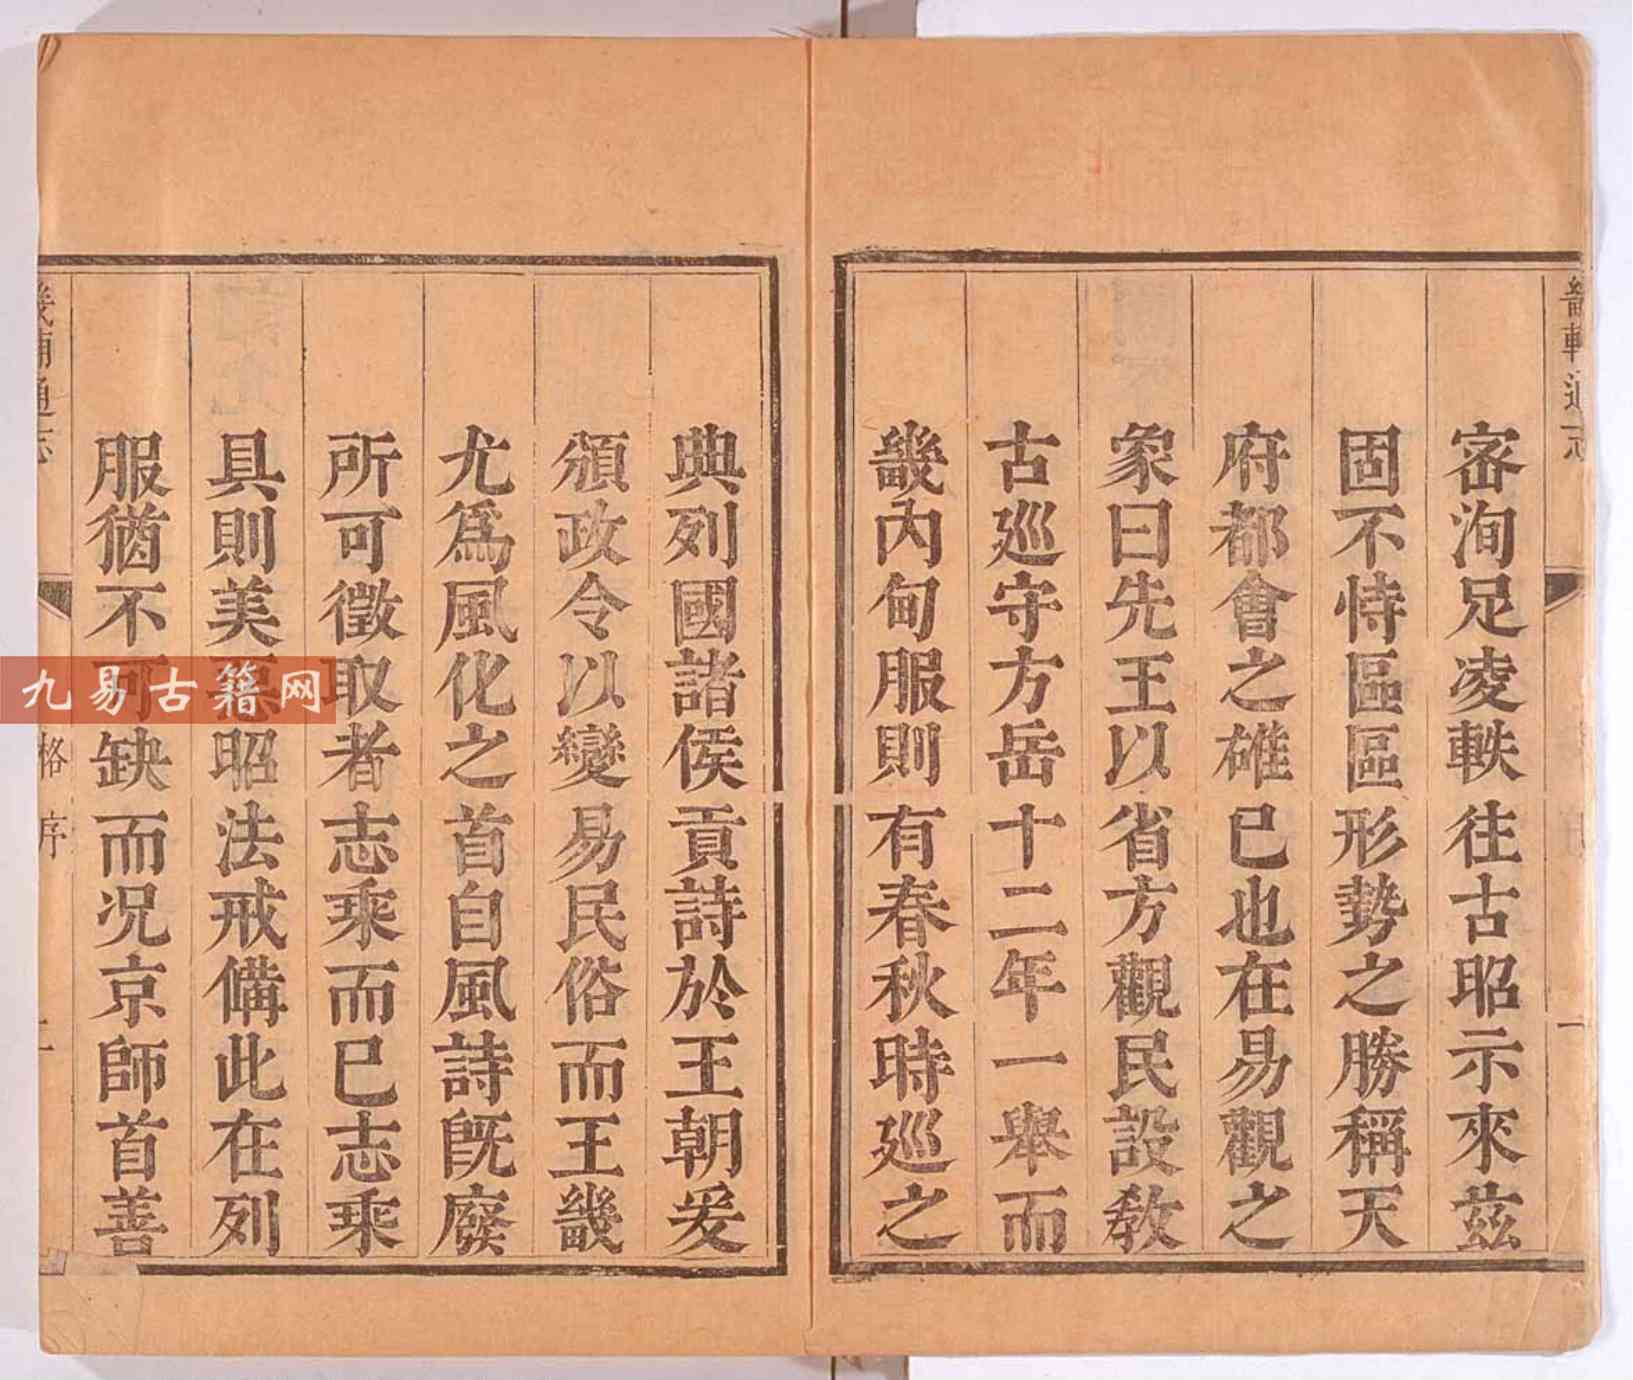 畿輔通志
一
密洵足凌軼往古昭示來茲
固不恃區區形勢之勝稱天
府都會之雄已也在易觀之
象曰先王以省方觀民設教
古巡守方岳十二年一舉而
畿內甸服則有春秋時巡之
典列國諸侯貢詩於王朝爰
頒政令以變易民俗而王畿
尤為風化之首自風詩既廢
所可徵取者志乘而已志乘
具則美惡昭法戒備此在列
服猶不可缺而况京師首善
畿輔通志
格序
二
九易古籍网